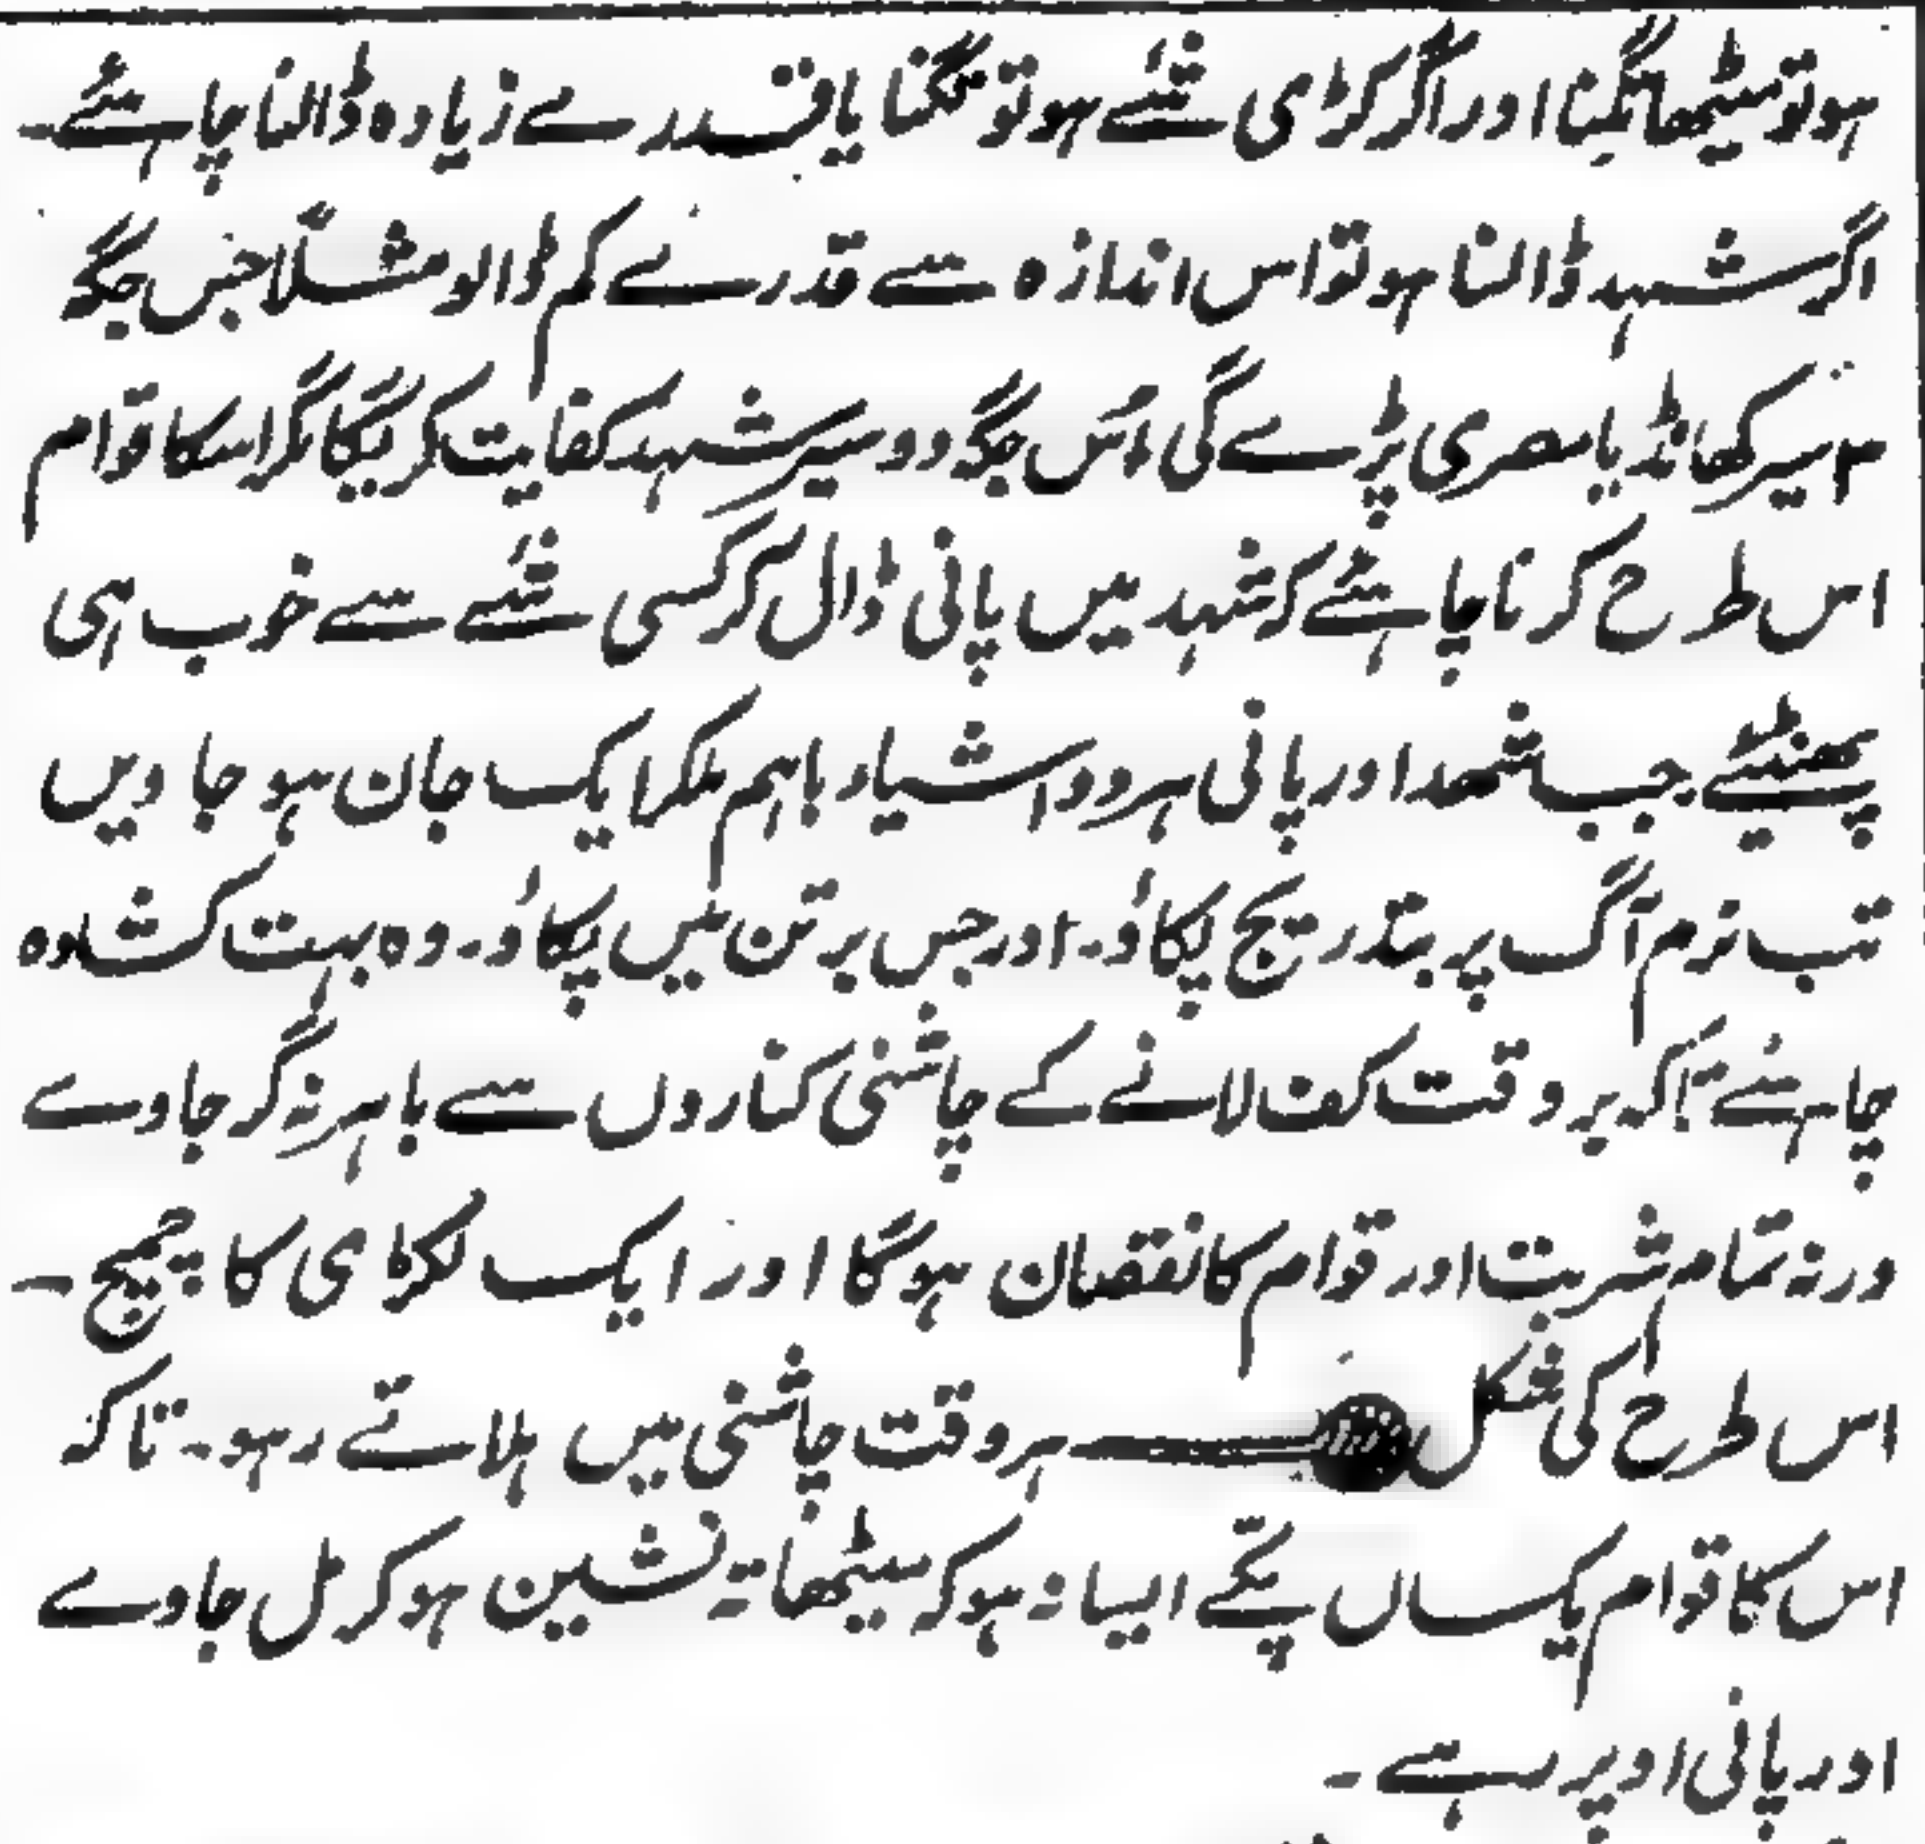 ہو تو میٹھا تگنا اور اگر کڑی شئے ہو تو تگنا یا قدرے زیادہ ڈالنا چاہئے۔
اگر شہد ڈالنا ہو تو اس اندازہ سے قدرے کم ڈالو مثلًا جس جگہ
۳ سیر کھانڈ یا مصری پڑے گی اُس جگہ دو سیر شہد کفایت کریگا مگر اسکا قوام
اس طرح کرنا چاہئے کہ شہد میں پانی ڈال کر کسی شئے سے خوب ہی
پھنٹیے جب شہد اور پانی ہر دو اشیاء باہم ملکر ایک جان ہو جاویں
تب نرم آگ پر بتدریج پکاؤ۔ اور جس برتن میں پکاؤ۔ وہ بہت کشادہ
چاہئے تاکہ بر وقت کف لانے کے چاشنی کناروں سے باہر نہ گر جاوے
ورنہ تمام شربت اور قوام کا نقصان ہوگا اور ایک لکڑی کا چمچ۔
اس طرح کی شکل ہر وقت چاشنی میں ہلاتے رہو۔ تاکہ
اس کا قوام یکساں پکے ایسا نہ ہو کہ میٹھا تہ نشین ہو کر مل جاوے
اور پانی اوپر رہے۔